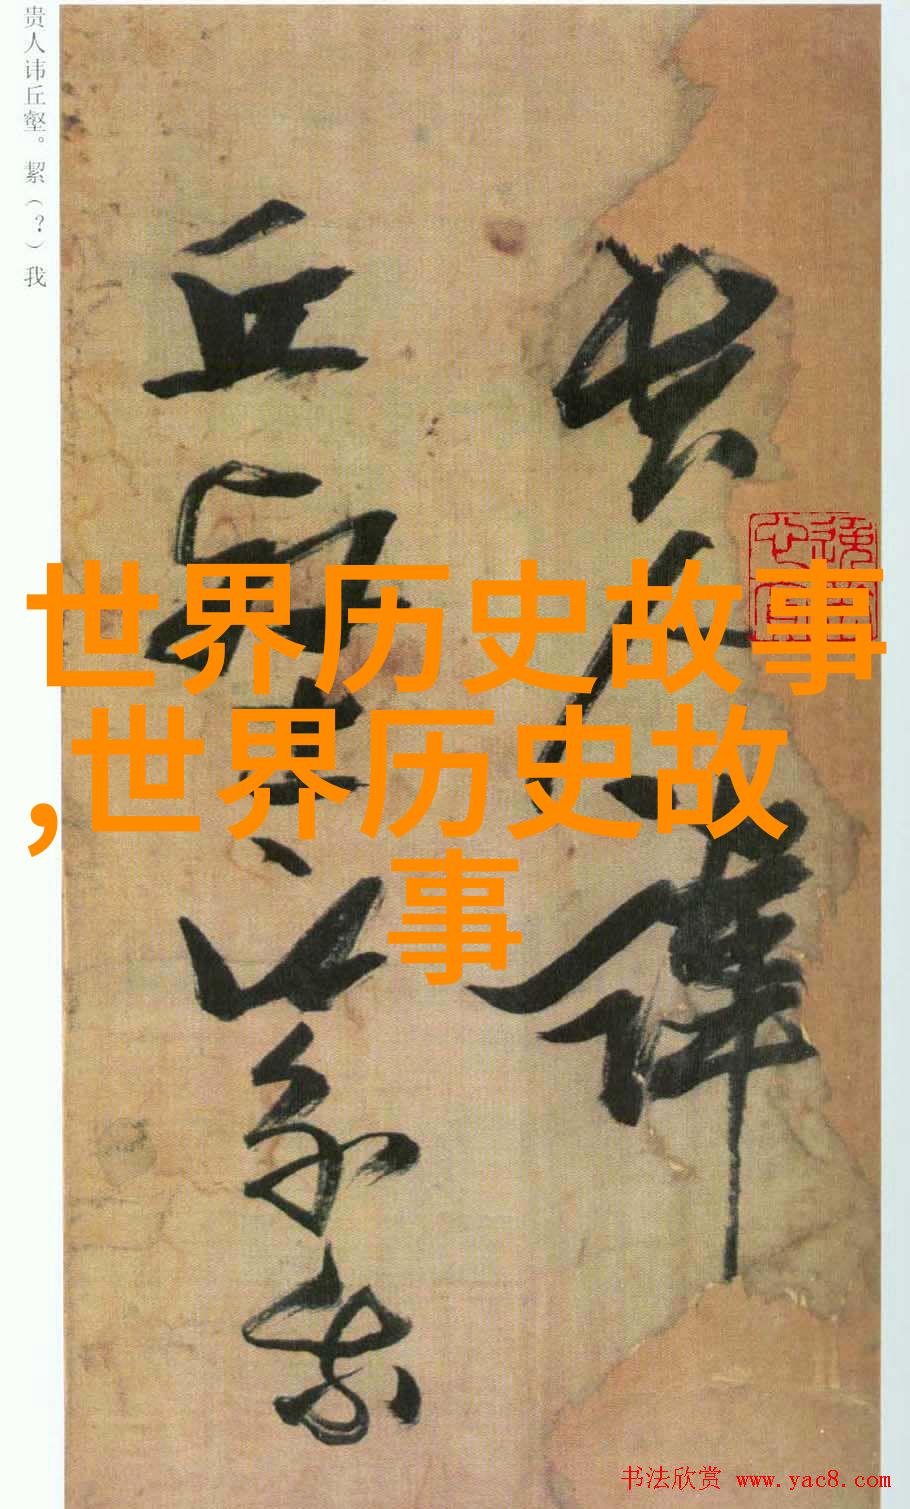 贵人讳丘壑。絜（？）我
贵人讳
丘壑之絜我
世界历史故事
,世界历史故
事
书法欣赏 www.yac8.com